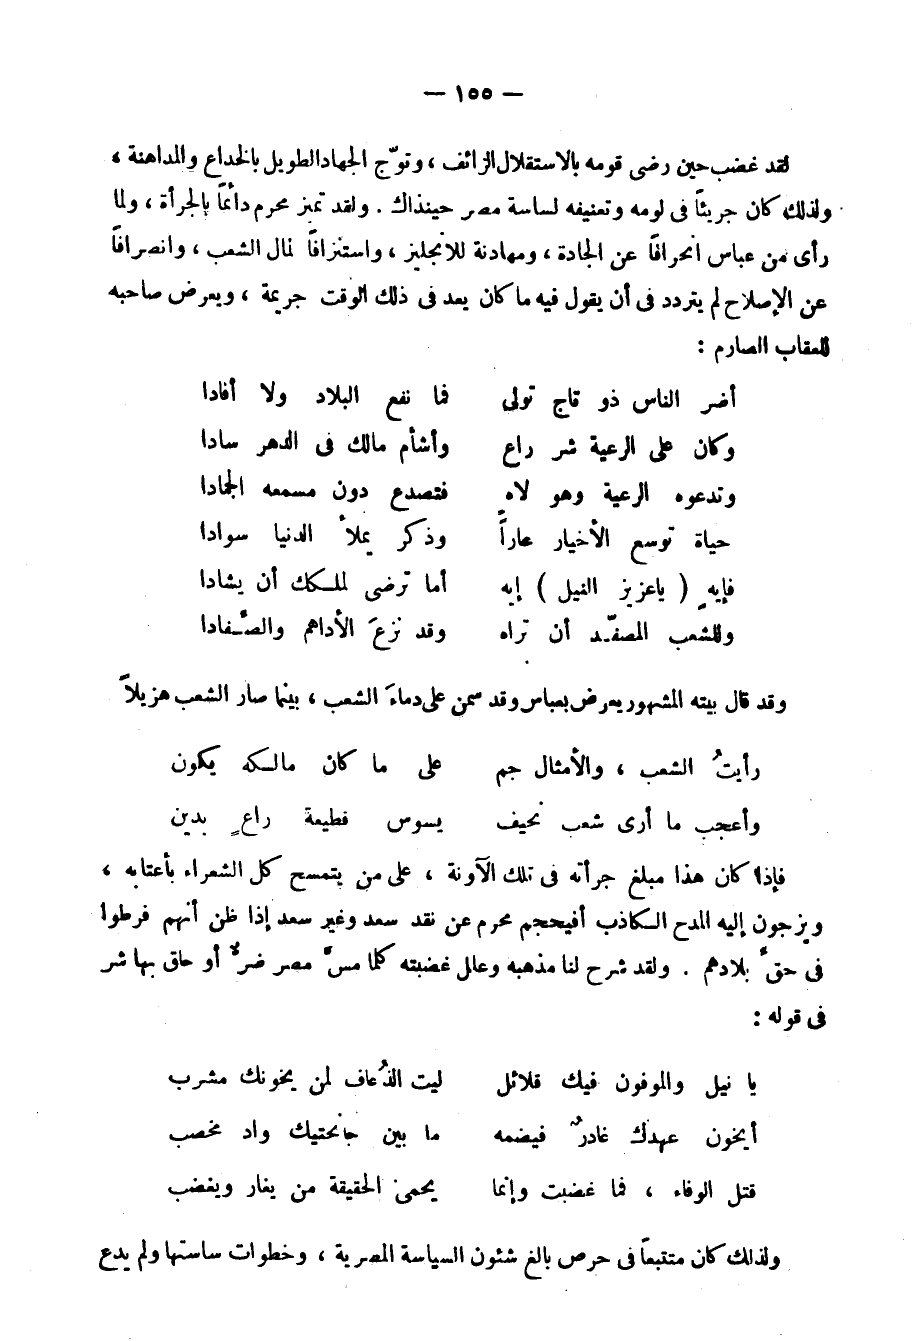 — ١٥٥ —
لقد غضب حين رضى قومه بالاستقلال الزائف ، وتوّج الجهاد الطويل بالخداع والمداهنة ،
ولذلك كان جريئاً فى لومه وتعنيفه لساسة مصر حينذاك . ولقد تميز محرم دائماً بالجرأة ، ولما
رأى من عباس انحرافاً عن الجادة ، ومهادنة للانجليز ، واستنزافاً لمال الشعب ، وانصرافاً
عن الإصلاح لم يتردد فى أن يقول فيه ما كان يعد فى ذلك الوقت جريمة ، ويعرض صاحبه
للعقاب الصارم :
أضر الناس ذو تاج تولى فما نفع البلاد ولا أفادا
وكان على الرعية شر راع وأشأم مالك فى الدهر سادا
وتدعوه الرعية وهو لاهٍ فتصدع دون مسمعه الجمادا
حياة توسع الأخيار عاراً وذكر يملأ الدنيا سوادا
فإيهٍ ( ياعزيز النيل ) إيه أما ترضى لملكك أن يشادا
وللشعب المصفّد أن تراه وقد نزعَ الأداهم والصُفادا
وقد قال بيته المشهور يعرض بعباس وقد سمن على دماءَ الشعب ، بينما صار الشعب هزيلاً
رأيتُ الشعب ، والأمثال جم على ما كان مالكه يكون
وأعجب ما أرى شعب نحيف يسوس قطيعة راعٍ بدين
فإذا كان هذا مبلغ جرأته فى تلك الآونة ، على من يتمسح كل الشعراء بأعتابه ،
ويزجون إليه المدح الكاذب أفيحجم محرم عن نقد سعد وغير سعد إذا ظن أنهم فرطوا
فى حق بلادهم . ولقد شرح لنا مذهبه وعلل غضبته كلما مسّ مصر ضرٌ أو حاق بها شر
فى قوله :
يا نيل والموفون فيك قلائل ليت الذُعاف لمن يخونك مشرب
أيخون عهدك غادرٌ فيضمه ما بين جانحتيك واد مخصب
قتل الوفاء ، فما غضبت وإنما يحمى الحقيقة من يغار ويغضب
ولذلك كان متتبعاً فى حرص بالغ شئون السياسة المصرية ، وخطوات ساستها ولم يدع